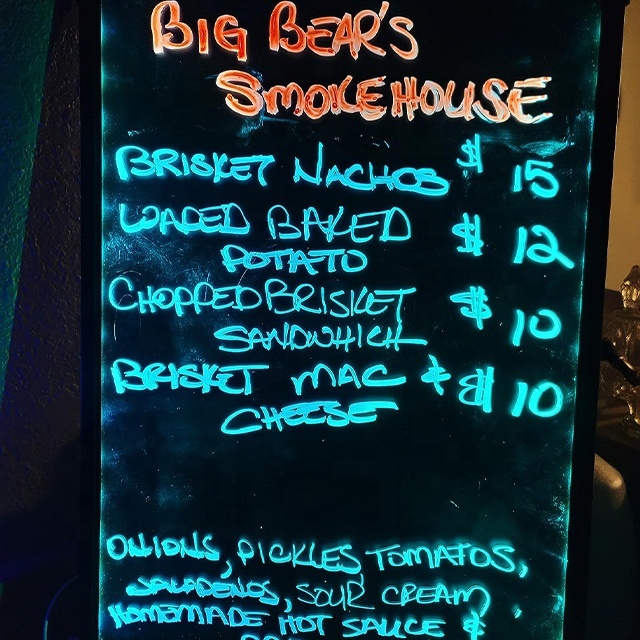 BIG BEAR'S
SMOKEHOUSE
BRISKET NACHOS $ 15
LOADED BAKED $ 12
POTATO
CHOPPED BRISKET $ 10
SANDWHICH
BRISKET MAC & $ 10
CHEESE
ONIONS, PICKLES TOMATOS,
JALAPENOS, SOUR CREAM,
HOMEMADE HOT SAUCE &